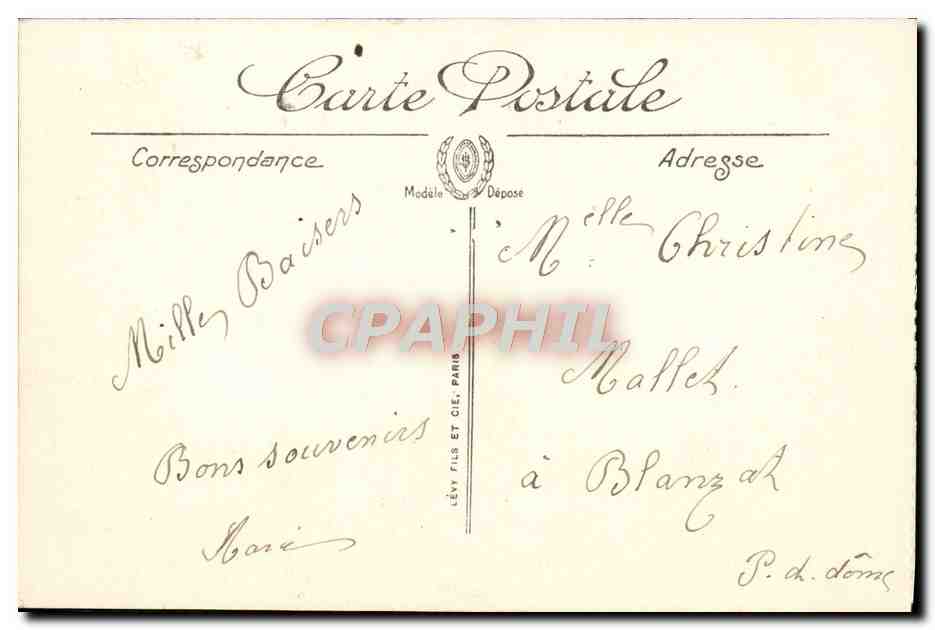 Carte Postale
Correspondance
Adresse
Modèle Déposé
Mille Baisers
Bons souvenirs
Marie
LÉVY FILS ET CIE, PARIS
Melle Christine
Mallet.
à Blanzat
P. d. dôme
CPAPHIL